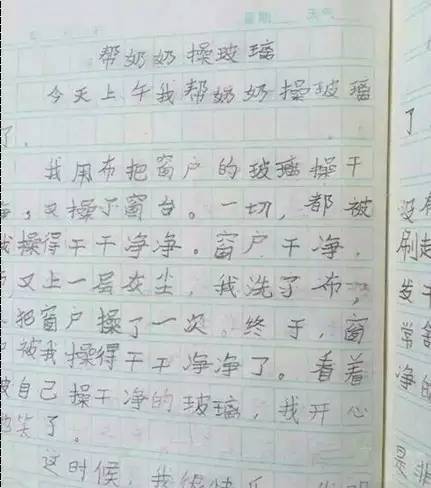 星期 天气
帮奶奶操玻璃
今天上午我帮奶奶操玻璃
了。
我用布把窗户的玻璃操干
净，又操了窗台。一切，都被
我操得干干净净。窗户干净，
又上一层灰尘，我洗了布，
把窗户操了一次。终于，窗
户被我操得干干净净了。看着
被自己操干净的玻璃，我开心
的笑了。
这时候，我很快乐，
了
没有
刷起
发干
常舒
净的
是非